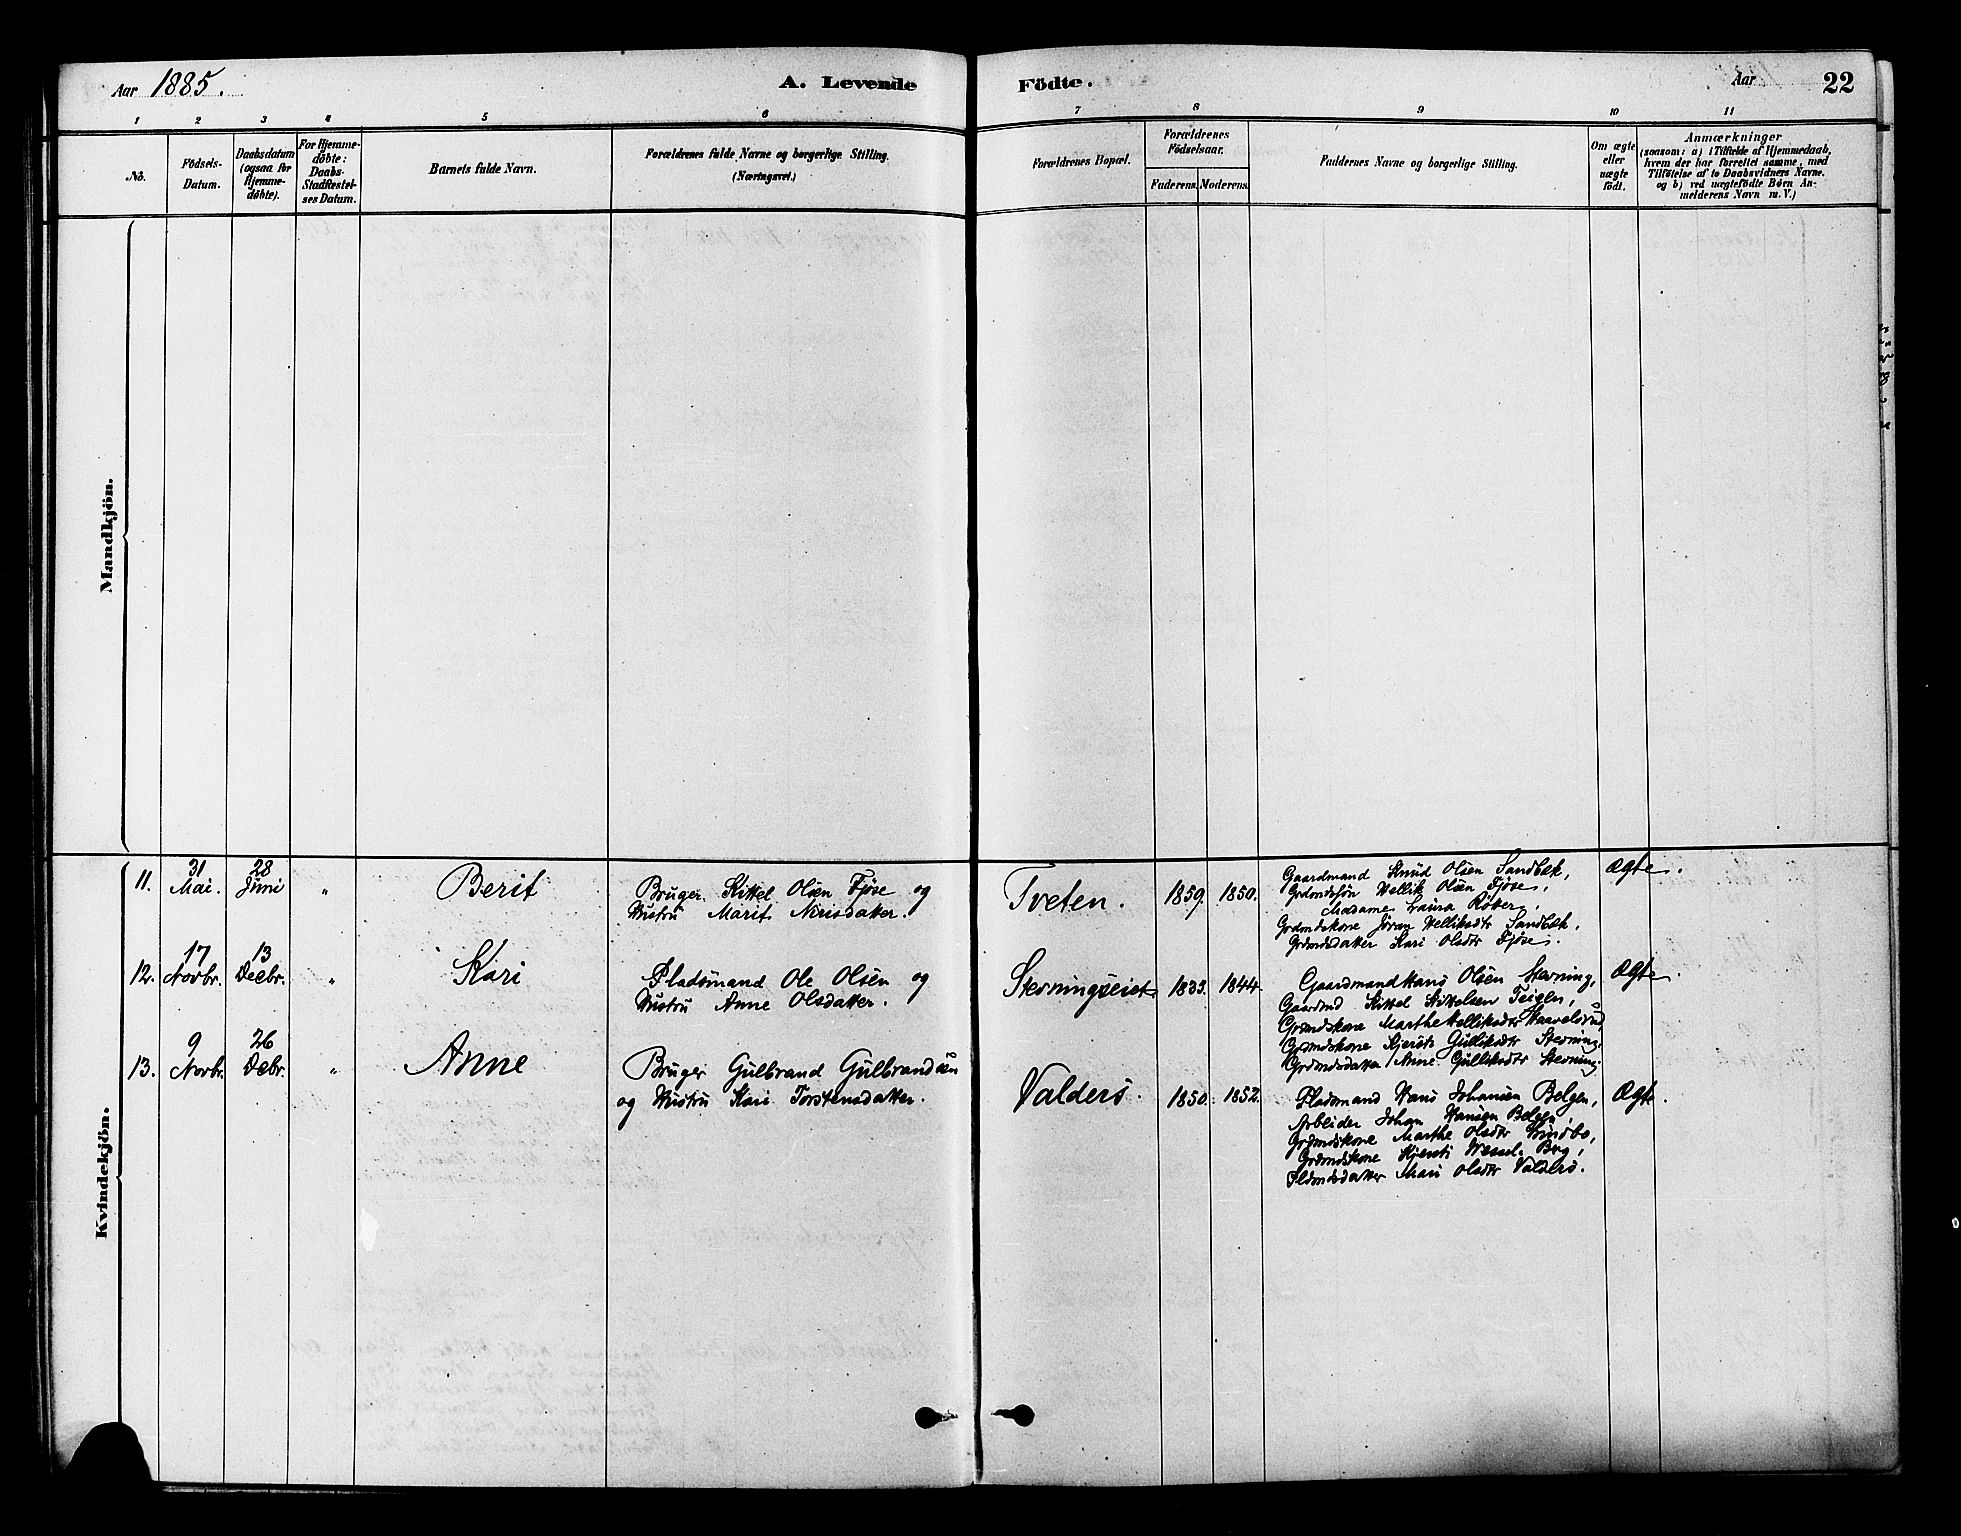 Aar 1885.
A. Levende Födte.
Aar
22
1 2 3 4 5 6 7 8 9 10 11
No.
Födsels-
Datum.
Daabsdatum
(ogsaa for
Hjemme-
døbte).
For Hjemme-
døbte:
Daabs-
Stadfæstel-
ses Datum.
Barnets fulde Navn.
Forældrenes fulde Navne og borgerlige Stilling.
(Næringsvei.)
Forældrenes Bopæl.
Forældrenes
Födselsaar.
Faderens. Moderens.
Faddernes Navne og borgerlige Stilling.
Om ægte
eller
uægte
födt.
Anmærkninger
(saasom: a) i Tilfælde af Hjemmedaab,
hvem der har forrettet samme, med
Tilföielse af to Daabsvidners Navne,
og b) ved uægtefödte Börn An-
melderens Navn m. V.)
Mandkjön.
Kvindekjön.
11.
31
Mai.
28
Juni
"
Berit
Bruger Kittel Olsen Fjøse og
Hustru Marit Nirisdatter.
Tveten.
1859.
1850.
Gaardmand Knud Olsen Sandbæk,
Grdmdssøn Hellik Olsen Fjøse,
Madame Laura Røtter,
Grdmdskone Jøran Helliksdtr Sandbæk,
Grdmdsdatter Kari Olsdtr Fjøse.
Ægte.
12.
17
Novbr.
13
Decbr.
"
Kari
Pladsmand Ole Olsen og
Hustru Anne Olsdatter.
Sterningseiet.
1833.
1844.
Gaardmand Hans Olsen Sterning,
Gaardmd Kittel Kittelsen Teigen,
Grdmdskone Marthe Helliksdtr Haavelsrud,
Grdmdskone Kjersti Gulliksdtr Sterning,
Grdmdsdatter Anne Gulliksdtr Sterning.
Ægte
13.
9
Novbr.
26
Debr.
"
Anne
Bruger Gulbrand Gulbrandsen
og Hustru Kari Torstensdatter.
Valders.
1850.
1852.
Pladsmand Hans Johansen Belgen,
Arbeider Johan Hansen Belgen,
Grdmdskone Marthe Olsdtr
Grdmdskone Kjersti Wessel. Berg,
Pldsmdsdatter Mari Olsdtr Valders.
Ægte.